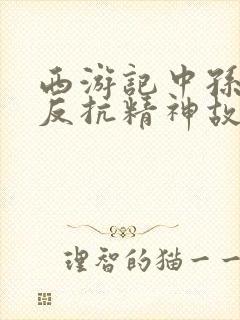 西游記中孫
反抗精神故
理智的猫一一